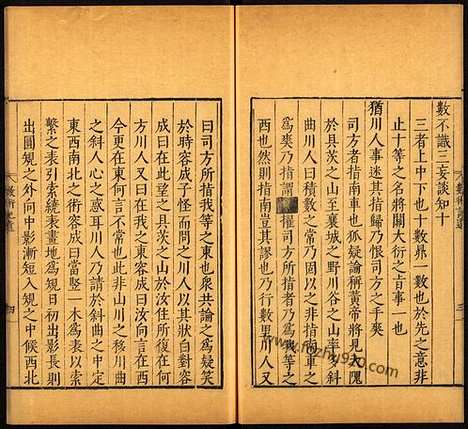 數不識三妄談知十
三者上中下也十數鼎 數也於先之意非
止十等之名將關大衍之旨事一也
猶川人事迷其指歸乃恨司方之手爽
司方者指南車也狐疑論稱黃帝將見大隗
於具茨之山至襄城之野川谷之山多斜
曲川人曰積數之常乃固以之非指南車
爲爽乃指謂 催司方乃爲我等之
西也然則指南豈其謬也乃行數里川人又
曰司方所指我等之東也衆共論之爲疑笑
於時容成子怪而問之川人以其狀白對容
成曰在此望之具茨之山於汝住所復在何
方川人又曰在我之東容成曰汝向言在西
今更在東何言不一也非山川之移川曲
之斜人心之惑耳川人乃請於斜曲之中定
東西南北之術容成曰當竪一木爲表以索
繫之表引索繞表畫地爲規日初出影長則
出圓規之外向中影漸短入規之中候西北
數術記遺
四
三